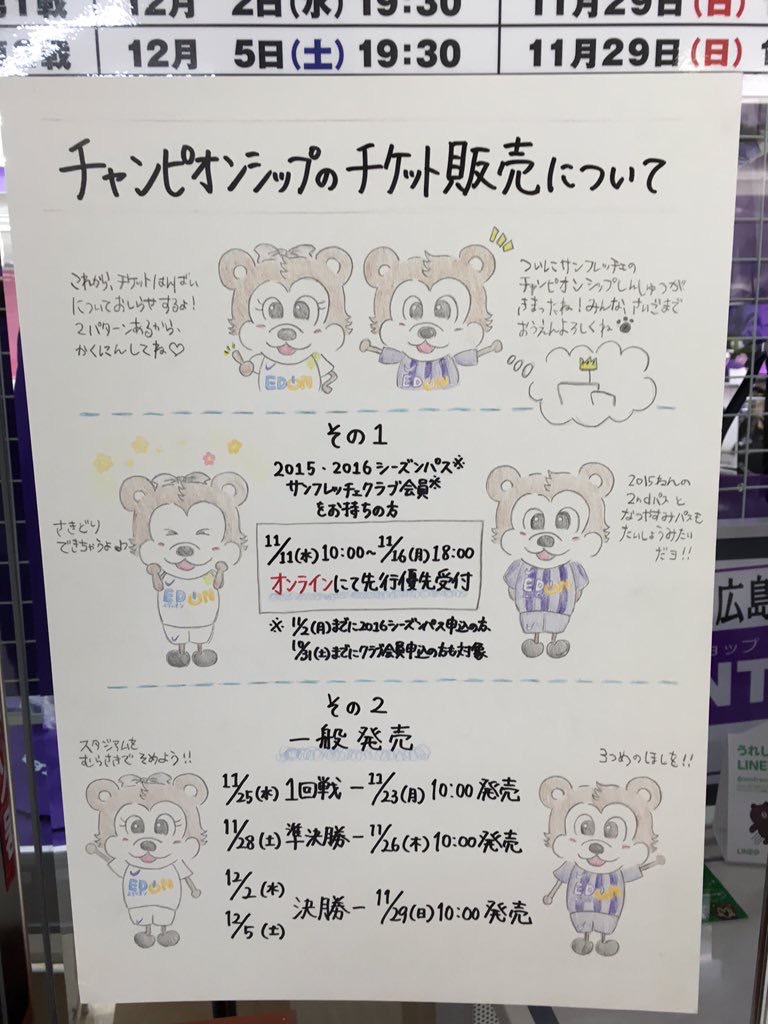 第1戦 12月 2日(水) 19:30 11月29日(日)
戦 12月 5日(土) 19:30 11月29日(日)
チャンピオンシップのチケット販売について
これから、チケットはんばい
についておしらせするよ!
2パターンあるから、
かくにんしてね♡
ついにサンフレッチェの
チャンピオンシップしんしゅつが
きまったね!みんな、さいごまで
おうえんよろしくね
EDION
EDION
その1
2015・2016シーズンパス※
サンフレッチェクラブ会員※
をお持ちの方
さきどり
できちゃうよ♪
2015ねんの
2ndパスと
なつやすみパスも
たいしょうみたい
だヨ!!
11/11(水)10:00~11/16(月)18:00
オンラインにて先行優先受付
※ 11/2(月)までに2016シーズンパス申込の方、
10/31(土)までにクラブ会員申込の方も対象
EDION
EDION
その2
一般発売
スタジアムを
むらさきで そめよう!!
3つめのほしを!!
11/25(水)1回戦-11/23(月)10:00発売
11/28(土)準決勝-11/26(木)10:00発売
12/2(水)
12/5(土)
決勝-11/29(日)10:00発売
EDION
EDION
広島
ョップ
NT
うれし
LINE